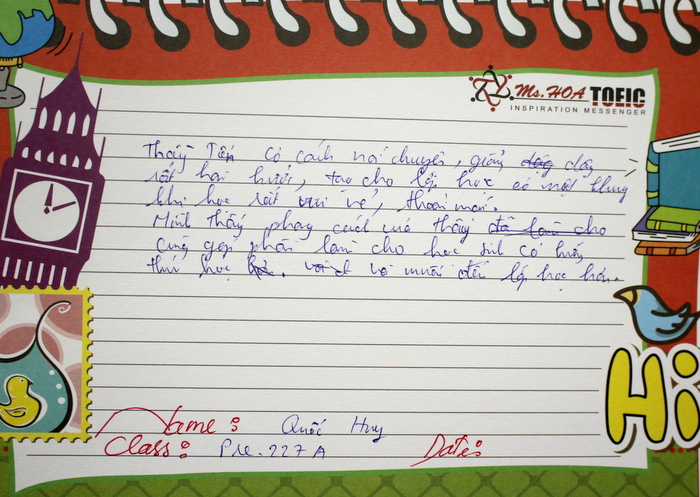 Ms. HOA TOEIC
INSPIRATION MESSENGER
Thầy Tiến có cách nói chuyện, giảng dạy
rất hài hước, tạo cho lớp học có một khung
khi học rất vui vẻ, thoải mái.
Mình thấy phong cách của thầy đã làm cho
cũng góp phần làm cho học sinh có hứng
thú học và muốn đến lớp học hơn.
Name: Quốc Huy
Class: Pre.227A
Date:
Hi